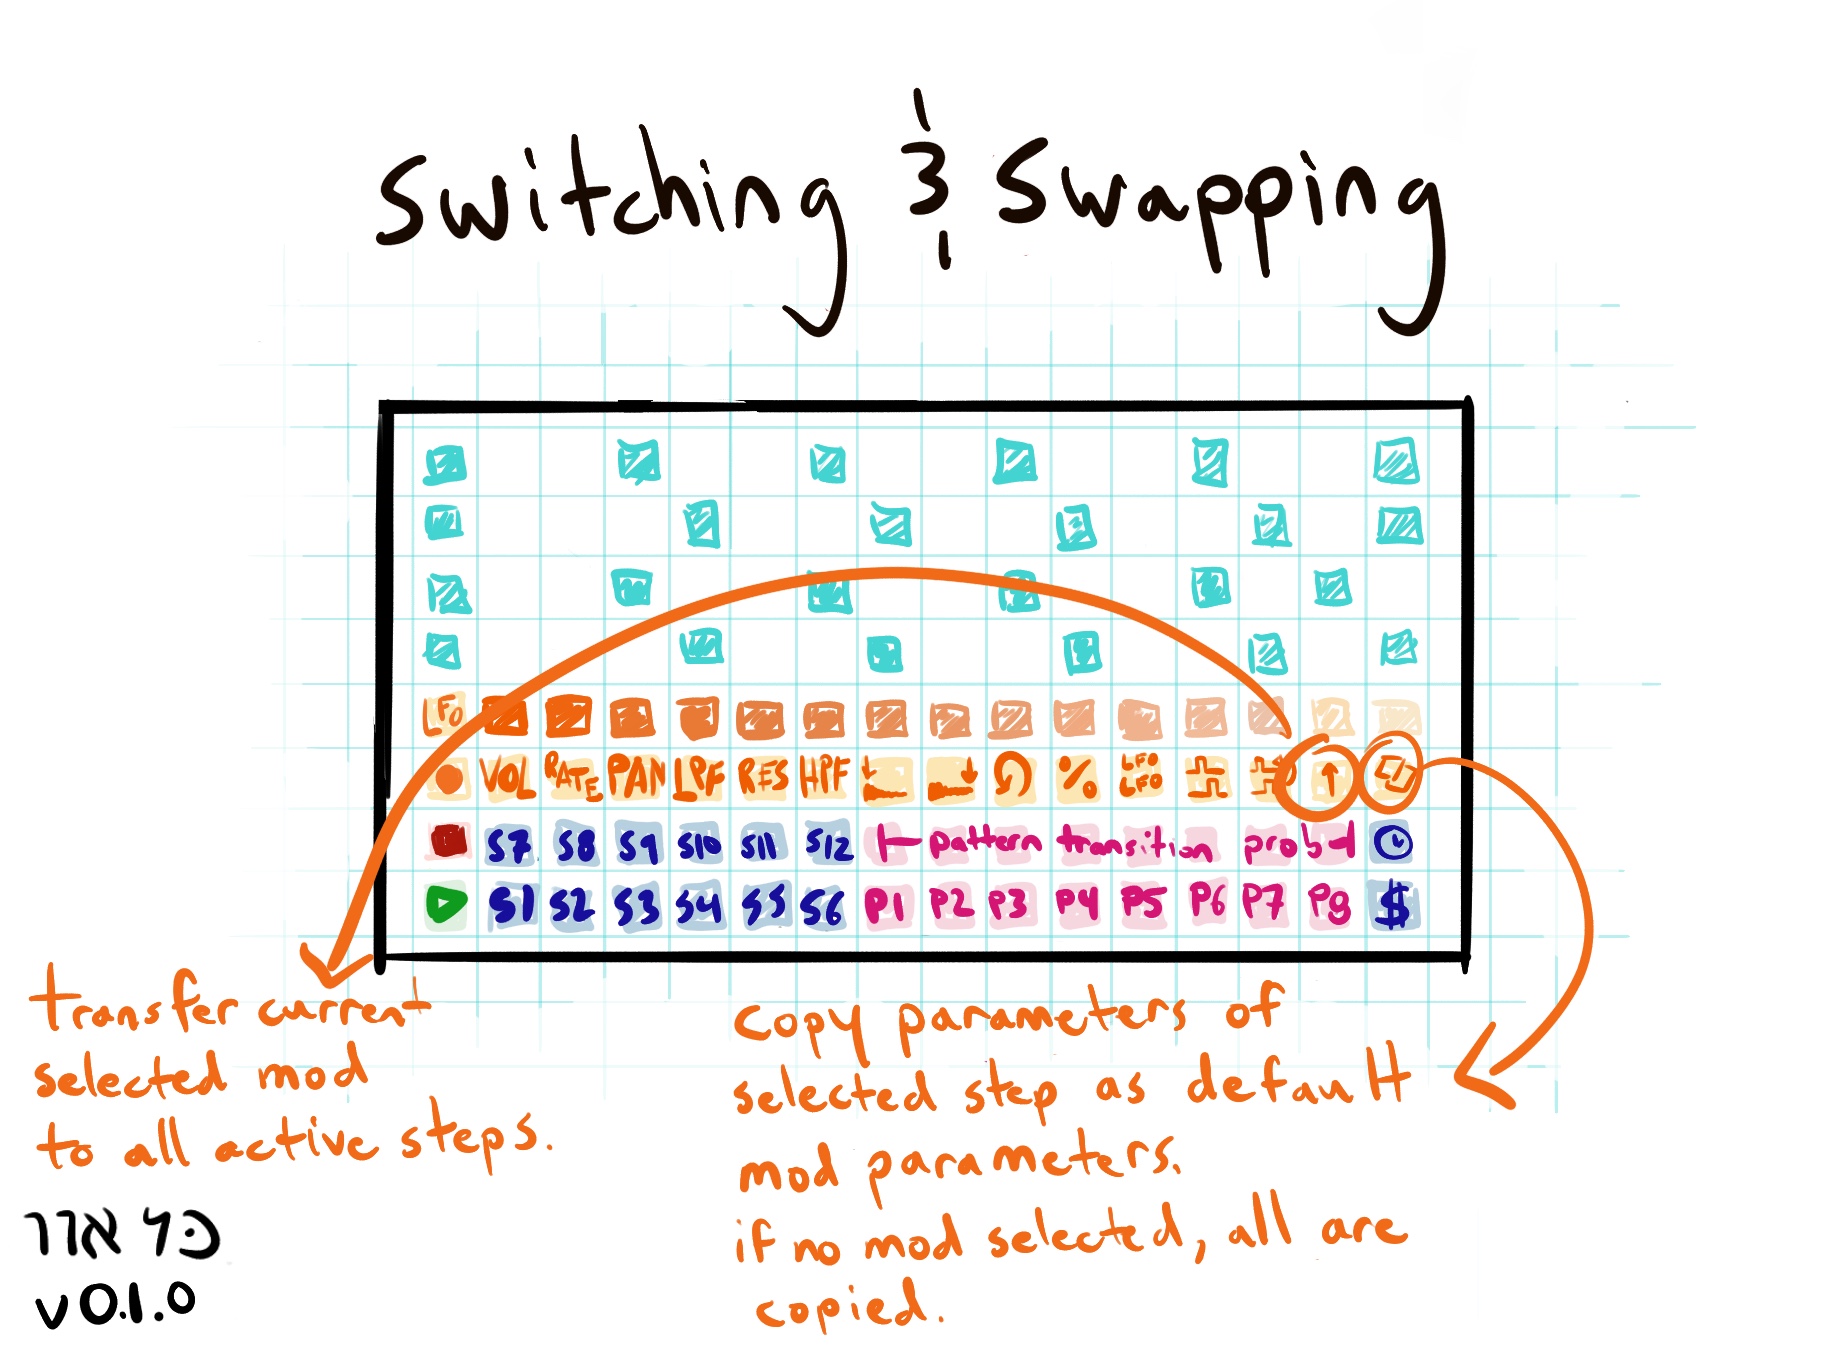 Switching & Swapping
LFO
VOL RATE PAN LPF RES HPF % LFO LFO ↑
S7 S8 S9 S10 S11 S12 pattern transition prob
S1 S2 S3 S4 S5 S6 P1 P2 P3 P4 P5 P6 P7 P8 $
transfer current
selected mod
to all active steps.
copy parameters of
selected step as default
mod parameters.
if no mod selected, all are
copied.
v0.1.0